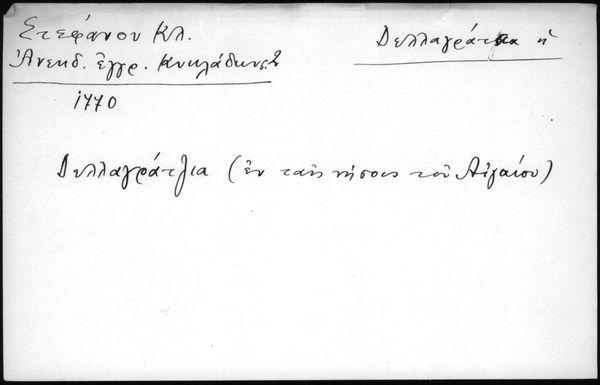 Στεφάνου Κλ.
Ἀνεκδ. ἔγγρ. Κυκλάδων 2
1770
Δελλαγράτσια ἡ
Δελλαγράτζια (ἐν ταῖς νήσοις τοῦ Αἰγαίου)